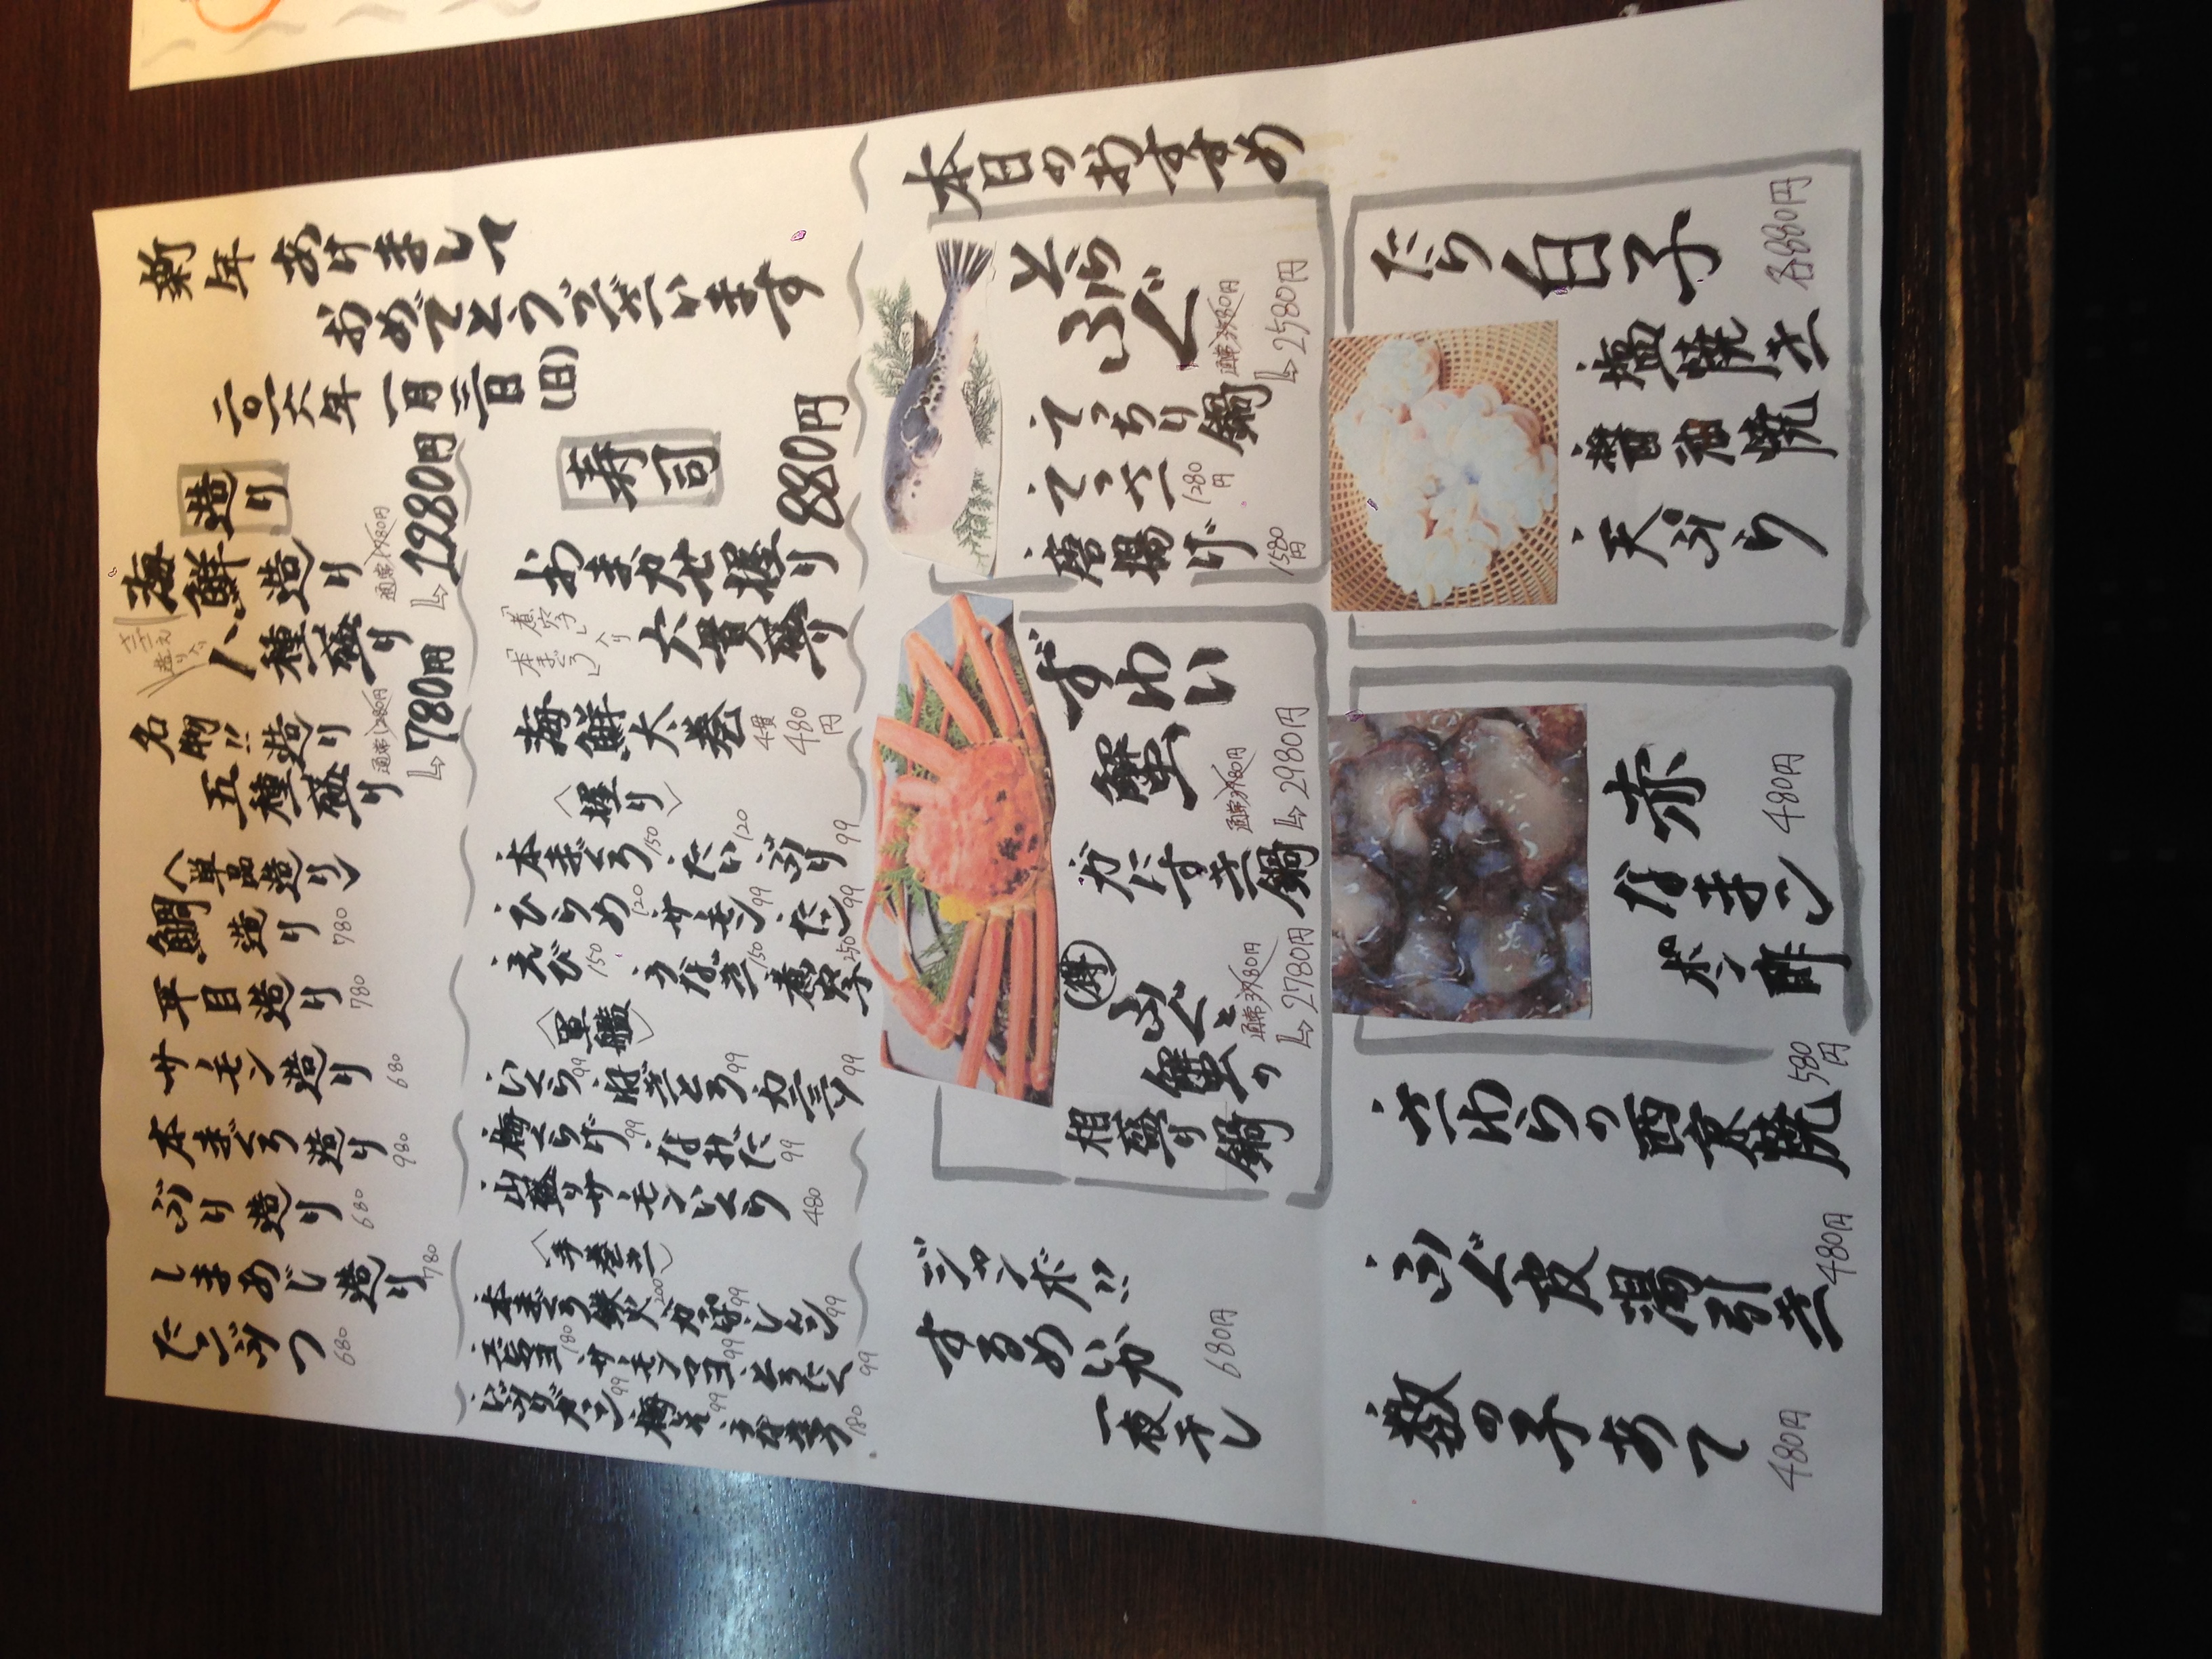 新年あけまして
おめでとうございます
二〇一六年 一月三日(日)
造り
海鮮造り
八種盛り
通常1980円
↳1280円
名物!!
五種造り盛り
通常1280円
↳780円
〈単品造り〉
鯛造り 780
平目造り 780
サーモン造り 680
本まぐろ造り 980
ぶり造り 680
しまあじ造り 780
たこぶつ 680
寿司
おまかせ握り
六貫盛り
880円
「煮穴子」入り
「本まぐろ」
海鮮太巻
4貫 480円
〈握り〉
本まぐろ 150
たい 120
ぶり 99
ひらめ 120
サーモン 99
たこ 99
えび 150
うなぎ 150
煮穴子 250
〈軍艦〉
いくら 99
ねぎとろ 99
カニミソ 99
梅くらげ 99
なおだ 99
山盛りサーモンいくら 480
〈手巻き〉
本まぐろ鉄火 200
えびマヨ 180
サーモンマヨ 99
とろたく 99
梅しそ 99
うなきゅう 180
本日のおすすめ
とらふぐ
てっちり鍋
通常3580円
↳2580円
てっさ 1280円
唐揚げ 1580円
ずわい蟹
かにすき鍋
通常3980円
↳2980円
得
ふぐと蟹の
相盛り鍋
通常3780円
↳2780円
ジャンボ!!
するめいか
一夜干し
680円
たら白子
各880円
塩焼き
醤油焼
天ぷら
赤なまこ
ポン酢
480円
さわらの西京焼
580円
ふぐ皮湯引き
480円
数の子あて
480円